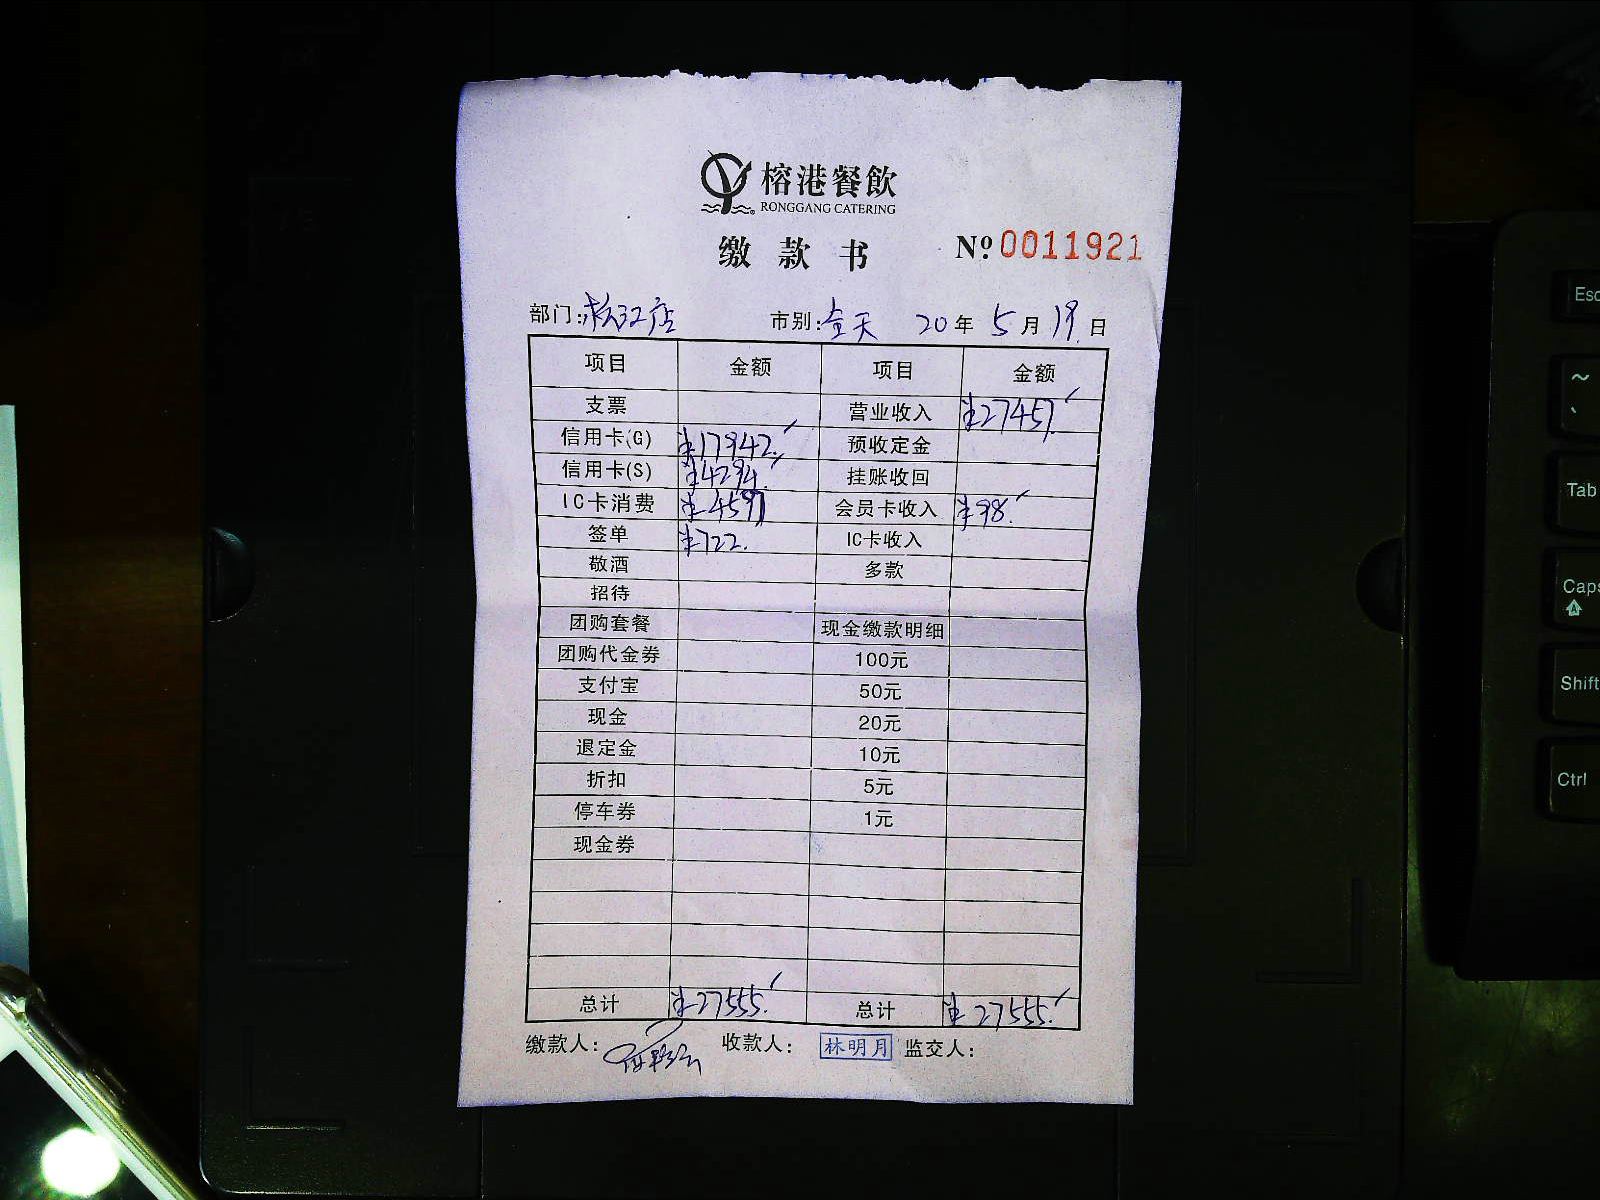 榕港餐飲
RONGGANG CATERING
缴款书 Nº 0011921
部门: 松江店 市别: 全天 20年 5月 19日
项目 金额 项目 金额
支票 营业收入 ¥27457.
信用卡(G) ¥17942. 预收定金
信用卡(S) ¥4294. 挂账收回
IC卡消费 ¥4597 会员卡收入 ¥98.
签单 ¥722. IC卡收入
敬酒 多款
招待
团购套餐 现金缴款明细
团购代金券 100元
支付宝 50元
现金 20元
退定金 10元
折扣 5元
停车券 1元
现金券
总计 ¥27555. 总计 ¥27555.
缴款人: 收款人: 林明月 监交人:
Esc
~
Tab
Caps
Shift
Ctrl